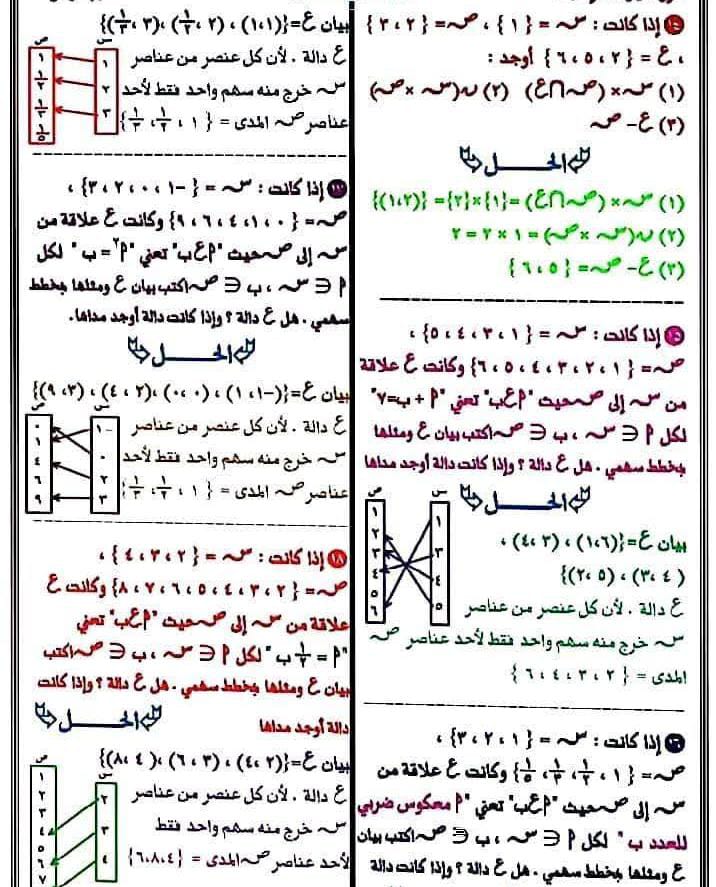 ١٤ إذا كانت : س = {١} ، ص = {٢ ، ٣}
، ع = {٢ ، ٥ ، ٦} أوجد :
(١) س × (ص ∩ ع) (٢) ن(س × ص)
(٣) ع - ص
الحـــــل
(١) س × (ص ∩ ع) = {١} × {٢} = {(١،٢)}
(٢) ن(س × ص) = ١ × ٢ = ٢
(٣) ع - ص = {٥ ، ٦}
إذا كانت : س = {١ ، ٣ ، ٤ ، ٥} ،
ص = {١ ، ٢ ، ٣ ، ٤ ، ٥ ، ٦} وكانت ع علاقة
من س إلى ص حيث "أ ع ب" تعني "أ + ب = ٧"
لكل أ ∈ س ، ب ∈ ص اكتب بيان ع ومثلها
بمخطط سهمي . هل ع دالة ؟ وإذا كانت دالة أوجد مداها
الحـــــل
س
ص
١
٣
٤
٥
١
٢
٣
٤
٥
٦
بيان ع = {(١،٦) ، (٣ ،٤) ،
(٤ ،٣) ، (٥ ،٢)}
ع دالة . لأن كل عنصر من عناصر
س خرج منه سهم واحد فقط لأحد عناصر ص
المدى = {٢ ، ٣ ، ٤ ، ٦}
١٦ إذا كانت : س = {١ ، ٢ ، ٣} ،
ص = {١ ، ١/٢ ، ١/٣ ، ١/٥} وكانت ع علاقة من
س إلى ص حيث "أ ع ب" تعني "أ معكوس ضربي
للعدد ب" لكل أ ∈ س ، ب ∈ ص اكتب بيان
ع ومثلها بمخطط سهمي . هل ع دالة ؟ وإذا كانت دالة
بيان ع = {(١،١) ، (٢ ، ١/٢) ، (٣ ، ١/٣)}
ع دالة . لأن كل عنصر من عناصر
س خرج منه سهم واحد فقط لأحد
عناصر ص المدى = {١ ، ١/٢ ، ١/٣}
س
ص
١
٢
٣
١
١/٢
١/٣
١/٥
١٧ إذا كانت : س = {-١ ، ٠ ، ٢ ، ٣} ،
ص = {٠ ، ١ ، ٤ ، ٦ ، ٩} وكانت ع علاقة من
س إلى ص حيث "أ ع ب" تعني "أ٢ = ب" لكل
أ ∈ س ، ب ∈ ص اكتب بيان ع ومثلها بمخطط
سهمي . هل ع دالة ؟ وإذا كانت دالة أوجد مداها.
الحـــــل
بيان ع = {(-١ ،١) ، (٠ ،٠) ، (٢ ،٤) ، (٣ ،٩)}
ع دالة . لأن كل عنصر من عناصر
س خرج منه سهم واحد فقط لأحد
عناصر ص المدى = {١ ، ١/٢ ، ١/٣}
س
ص
-١
٠
٢
٣
٠
١
٤
٦
٩
١٨ إذا كانت : س = {٢ ، ٣ ، ٤} ،
ص = {٢ ، ٣ ، ٤ ، ٥ ، ٦ ، ٧ ، ٨} وكانت ع
علاقة من س إلى ص حيث "أ ع ب" تعني
"أ = ١/٢ ب" لكل أ ∈ س ، ب ∈ ص اكتب
بيان ع ومثلها بمخطط سهمي . هل ع دالة ؟ وإذا كانت
دالة أوجد مداها
الحـــــل
بيان ع = {(٢ ،٤) ، (٣ ،٦) ، (٤ ،٨)}
ع دالة . لأن كل عنصر من عناصر
س خرج منه سهم واحد فقط
لأحد عناصر ص المدى = {٤ ،٨ ،٦}
س
ص
٢
٣
٤
١
٢
٣
٤
٥
٦
٧